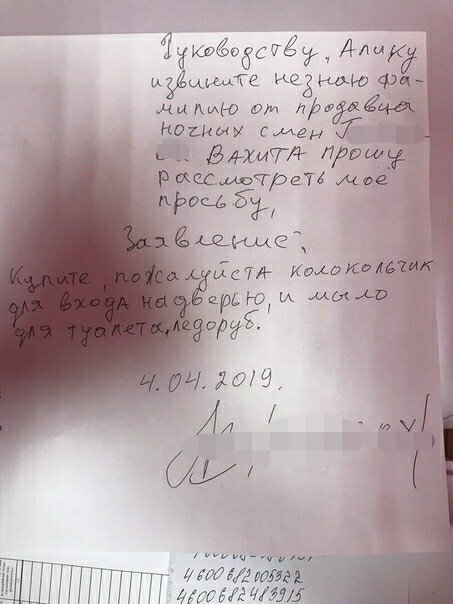 Руководству, Алику
извините незнаю фа-
милию от продавца
ночных смен Г
ВАХИТА прошу
рассмотреть моё
просьбу,
Заявление:,
Купите, пожалуйста колокольчик
для входа надверью, и мыло
для туалета, ледоруб.
4.04.2019.
4600682005322
4600682483915